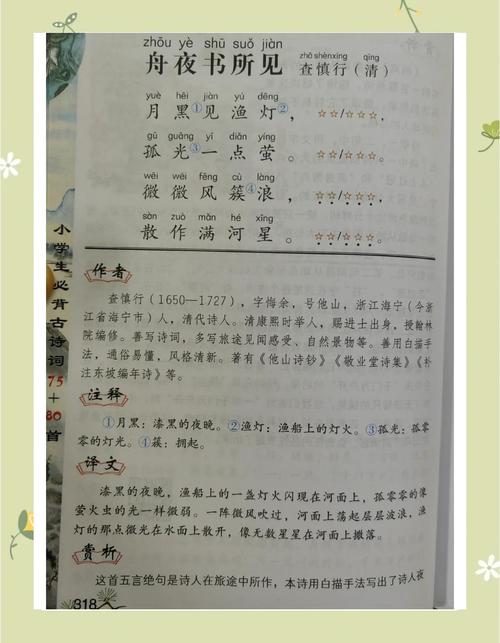 zhōu yè shū suǒ jiàn
舟夜书所见
zhā shènxíng qīng
查慎行（清）
yuè hēi jiàn yú dēng
月黑①见渔灯②，☆☆/☆☆☆，
gū guāng yì diǎn yíng
孤光③一点萤。☆☆/☆☆☆。
wēi wēi fēng cù làng
微微风簇④浪，☆☆/☆☆☆，
sàn zuò mǎn hé xīng
散作满河星。☆☆/☆☆☆。
作者
查慎行（1650—1727），字悔余，号他山，浙江海宁（今浙
江省海宁市）人，清代诗人。清康熙时举人，赐进士出身，授翰林
院编修。善写诗词，多写旅途见闻感受、自然景物等。善用白描手
法，通俗易懂，风格清新。著有《他山诗钞》《敬业堂诗集》《补
注东坡编年诗》等。
注释
①月黑：漆黑的夜晚。②渔灯：渔船上的灯火。③孤光：孤零
零的灯光。④簇：拥起。
译文
漆黑的夜晚，渔船上的一盏灯火闪现在河面上，孤零零的像
萤火虫的光一样微弱。一阵微风吹过，河面上荡起层层波浪，渔
灯的那点微光在水面上散开，像无数星星在河面上撒落。
赏析
这首五言绝句是诗人在旅途中所作，本诗用白描手法写出了诗人夜
318
小学生必背古诗词
75
+
80
首